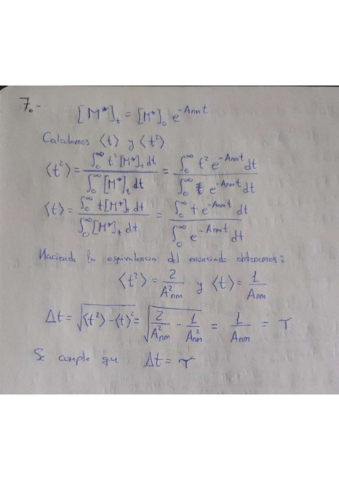 7.-
[M*]_t = [M*]_0 e^{-Anm t}
Calculamos ⟨t⟩ y ⟨t²⟩
⟨t²⟩ = ∫_0^∞ t² [M*]_t dt / ∫_0^∞ [M*]_t dt = ∫_0^∞ t² e^{-Anm t} dt / ∫_0^∞ e^{-Anm t} dt
⟨t⟩ = ∫_0^∞ t [M*]_t dt / ∫_0^∞ [M*]_t dt = ∫_0^∞ t e^{-Anm t} dt / ∫_0^∞ e^{-Anm t} dt
Haciendo la equivalencia del enunciado obtenemos:
⟨t²⟩ = 2 / A²nm y ⟨t⟩ = 1 / Anm
Δt = √(⟨t²⟩ - ⟨t⟩²) = √(2 / A²nm - 1 / A²nm) = 1 / Anm = τ
Se cumple que Δt = τ